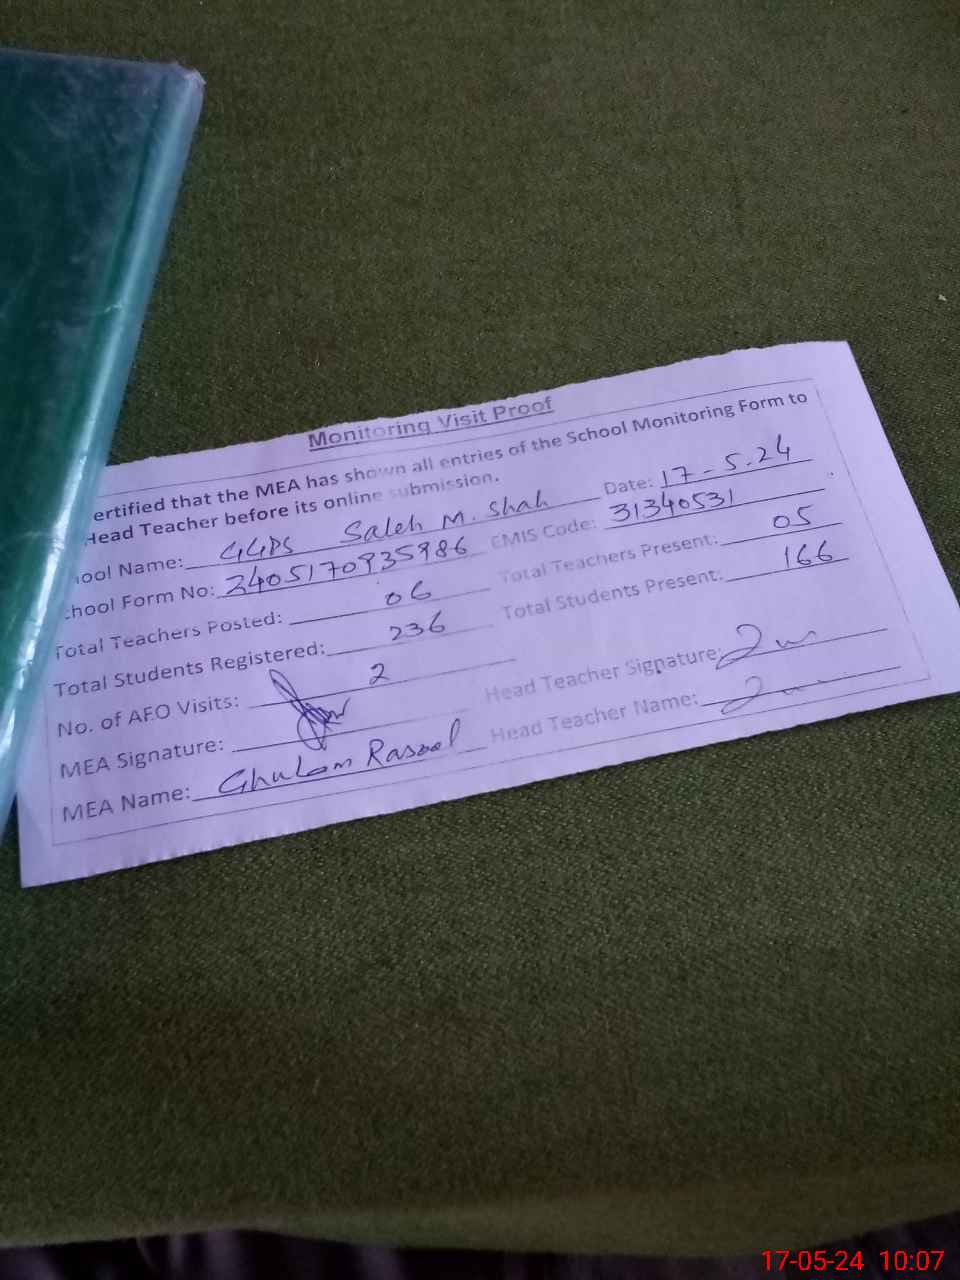 Monitoring Visit Proof
ertified that the MEA has shown all entries of the School Monitoring Form to
Head Teacher before its online submission.
ool Name: GGPS Saleh M. Shah Date: 17-5-24
chool Form No: 2405170935986 EMIS Code: 31340531
Total Teachers Posted: 06 Total Teachers Present: 05
Total Students Registered: 236 Total Students Present: 166
No. of AEO Visits: 2
MEA Signature: Head Teacher Signature:
MEA Name: Ghulam Rasool Head Teacher Name:
17-05-24 10:07